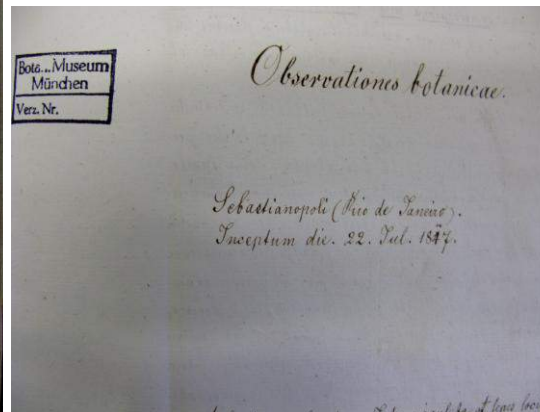 Bota... Museum
München
Verz. Nr.
Observationes botanicae.
Sebastianopoli (Rio de Janeiro).
Inceptum die. 22. Jul. 1817.